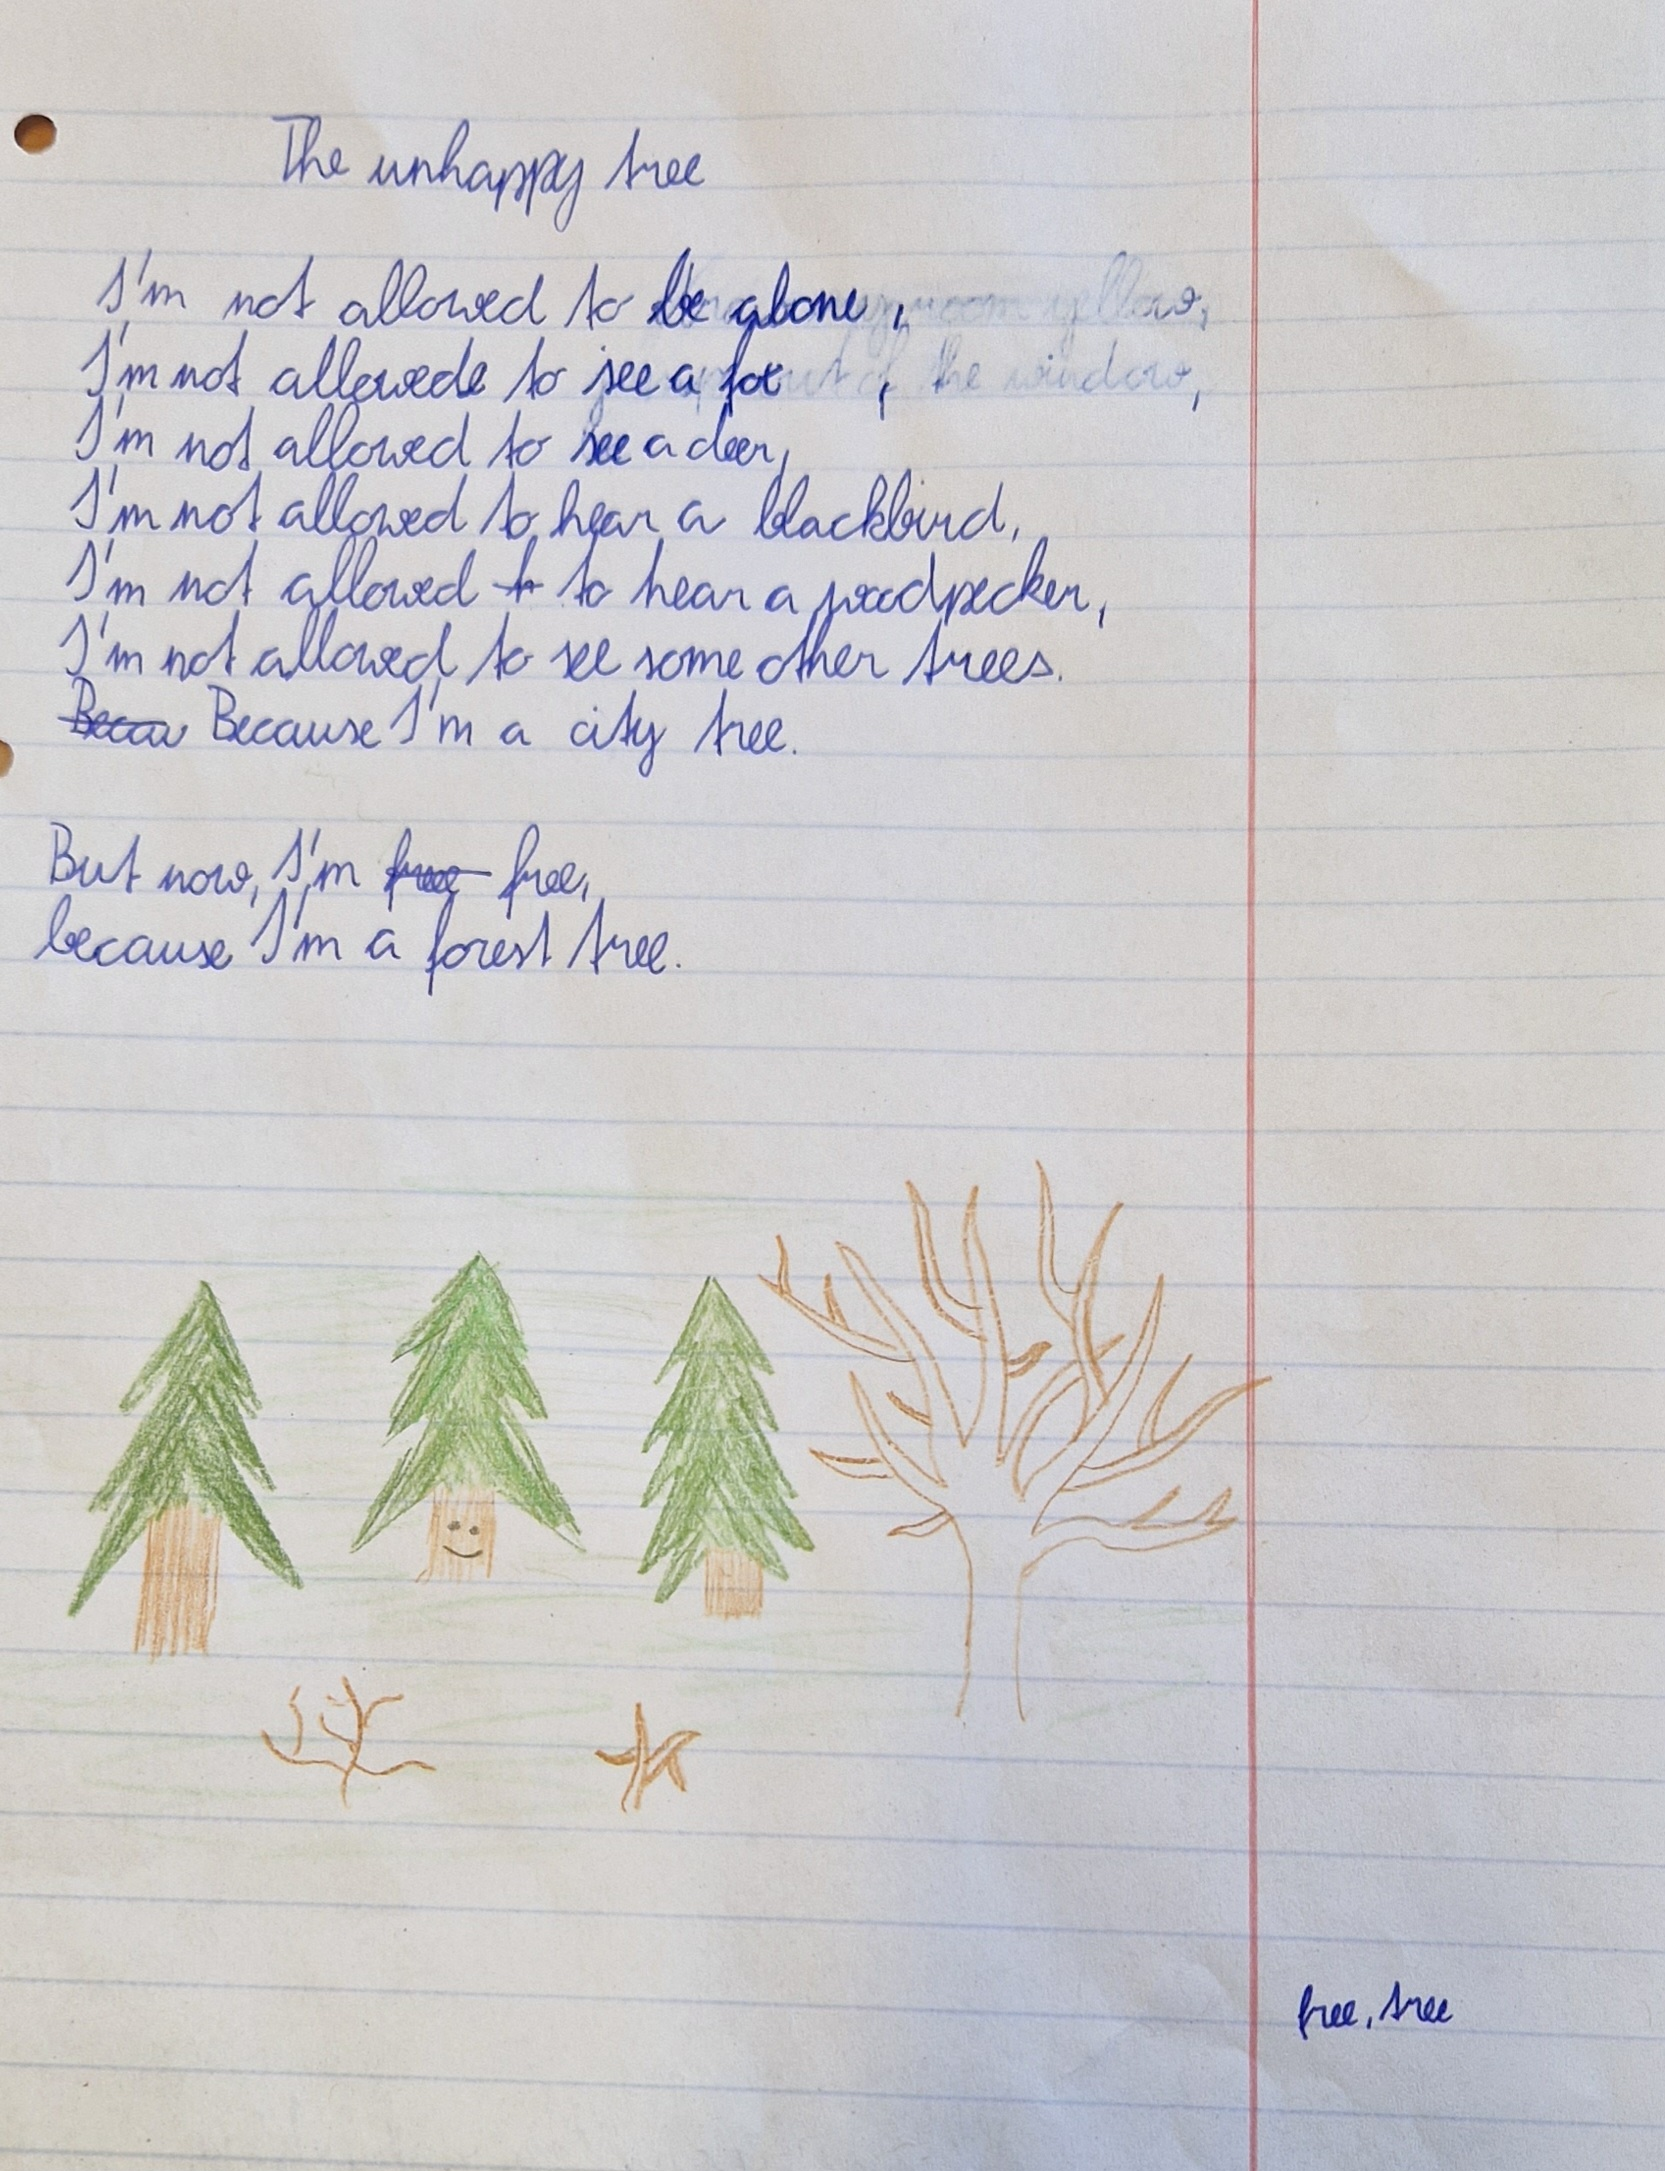 The unhappy tree
I'm not allowed to be alone,
I'm not allowede to see a fox,
I'm not allowed to see a deer,
I'm not allowed to hear a blackbird,
I'm not allowed to hear a woodpecker,
I'm not allowed to see some other trees.
Because I'm a city tree.
But now, I'm free,
because I'm a forest tree.
free, tree